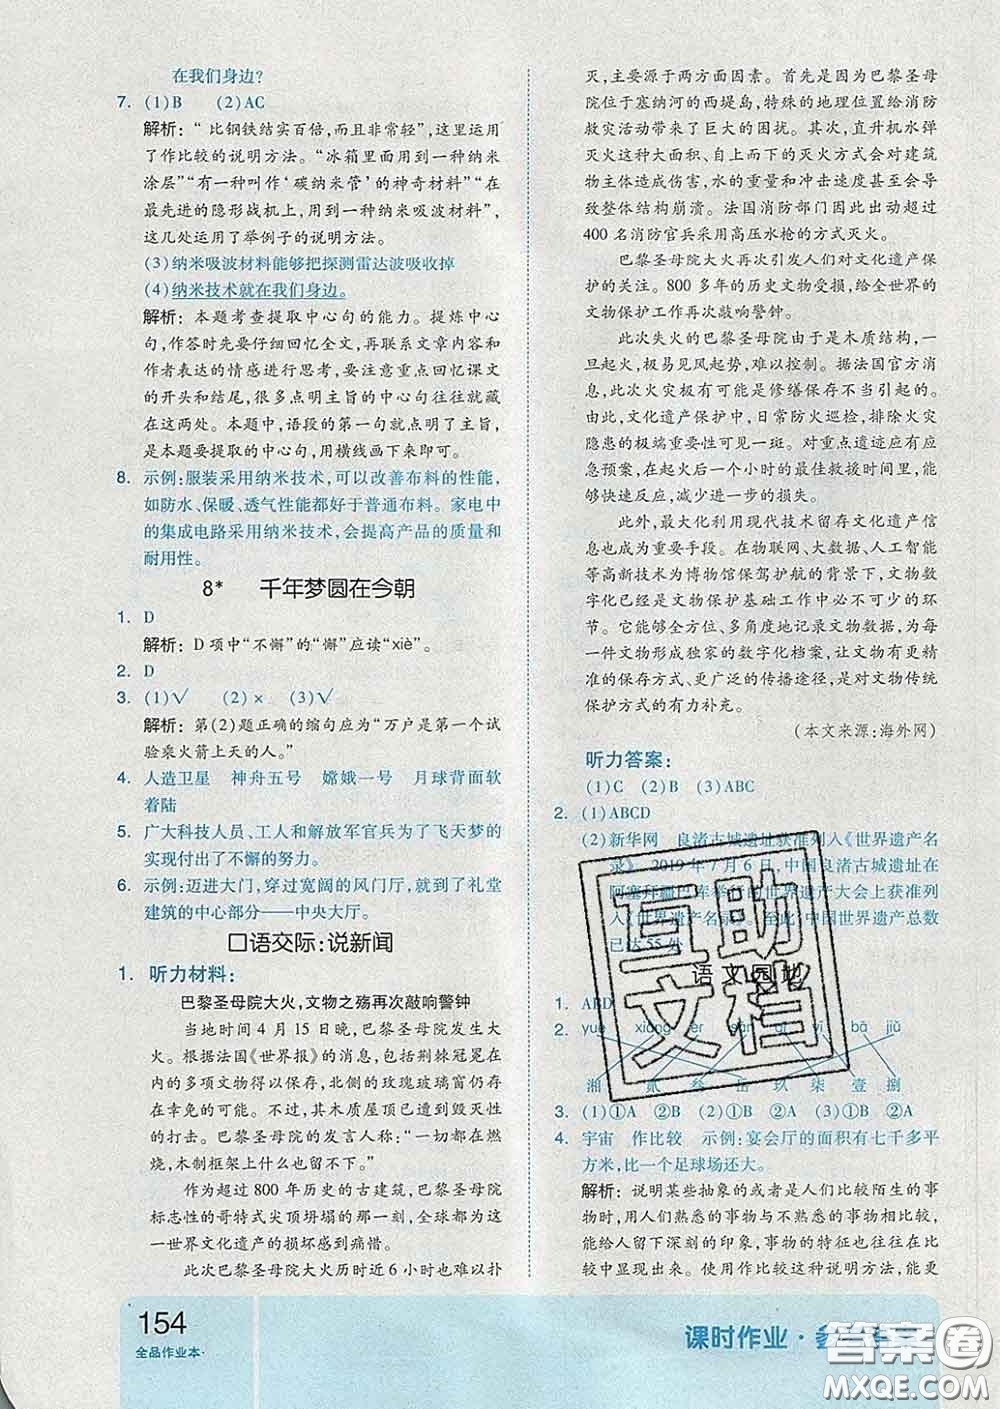 在我们身边?
7. (1)B (2)AC
解析:“比钢铁结实百倍,而且非常轻”,这里运用
了作比较的说明方法。“冰箱里面用到一种纳米
涂层”“有一种叫作‘碳纳米管’的神奇材料”“在
最先进的隐形战机上,用到一种纳米吸波材料”,
这几处运用了举例子的说明方法。
(3)纳米吸波材料能够把探测雷达波吸收掉
(4)纳米技术就在我们身边。
解析:本题考查提取中心句的能力。提炼中心
句,作答时先要仔细回忆全文,再联系文章内容和
作者表达的情感进行思考,要注意重点回忆课文
的开头和结尾,很多点明主旨的中心句往往就藏
在这两处。本题中,语段的第一句就点明了主旨,
是本题要提取的中心句,用横线画下来即可。
8. 示例:服装采用纳米技术,可以改善布料的性能,
如防水、保暖、透气性能都好于普通布料。家电中
的集成电路采用纳米技术,会提高产品的质量和
耐用性。
8* 千年梦圆在今朝
1. D
解析:D 项中“不懈”的“懈”应读“xiè”。
2. D
3. (1)√ (2)× (3)√
解析:第(2)题正确的缩句应为“万户是第一个试
验乘火箭上天的人。”
4. 人造卫星 神舟五号 嫦娥一号 月球背面软
着陆
5. 广大科技人员、工人和解放军官兵为了飞天梦的
实现付出了不懈的努力。
6. 示例:迈进大门,穿过宽阔的风门厅,就到了礼堂
建筑的中心部分——中央大厅。
口语交际:说新闻
1. 听力材料:
巴黎圣母院大火,文物之殇再次敲响警钟
当地时间 4 月 15 日晚,巴黎圣母院发生大
火。根据法国《世界报》的消息,包括荆棘冠冕在
内的多项文物得以保存,北侧的玫瑰玻璃窗仍存
在幸免的可能。不过,其木质屋顶已受到毁灭性
的打击。巴黎圣母院的发言人称:“一切都在燃
烧,木制框架上什么也留不下。”
作为超过 800 年历史的古建筑,巴黎圣母院
标志性的哥特式尖顶坍塌的那一刻,全球都为这
一世界文化遗产的损坏感到痛惜。
此次巴黎圣母院大火历时近 6 小时也难以扑
灭,主要源于两方面因素。首先是因为巴黎圣母
院位于塞纳河的西堤岛,特殊的地理位置给消防
救灾活动带来了巨大的困扰。其次,直升机水弹
灭火这种大规模、自上而下的灭火方式会对建筑
物主体造成伤害,水的重量和冲击速度甚至会导
致整体结构崩溃。法国消防部门因此出动超过
400 名消防官兵采用高压水枪的方式灭火。
巴黎圣母院大火再次引发人们对文化遗产保
护的关注。800 多年的历史文物受损,给全世界的
文物保护工作再次敲响警钟。
此次失火的巴黎圣母院由于是木质结构,一
旦起火,极易见风起势,难以控制。据法国官方消
息,此次火灾极有可能是修缮保存不当引起的。
由此,文化遗产保护中,日常防火巡检,排除火灾
隐患的极端重要性可见一斑。对重点遗迹应有应
急预案,在起火后一个小时的最佳救援时间里,能
够快速反应,减少进一步的损失。
此外,最大化利用现代技术留存文化遗产信
息也成为重要手段。在物联网、大数据、人工智能
等高新技术为博物馆保驾护航的背景下,文物数
字化已经是文物保护基础工作中必不可少的环
节。它能够全方位、多角度地记录文物数据,为每
一件文物形成独家的数字化档案,让文物有更精
准的保存方式、更广泛的传播途径,是对文物传统
保护方式的有力补充。
(本文来源:海外网)
听力答案:
(1)C (2)B (3)ABC
2. (1)ABCD
(2)新华网 良渚古城遗址获准列入《世界遗产名
录》 2019 年 7 月 6 日,中国良渚古城遗址在
阿塞拜疆巴库举行的世界遗产大会上获准列
入《世界遗产名录》。至此,中国世界遗产总数
已达 55 处
语文园地
1. ABD
2. yuè xiāng èr sān qī yī bā jiǔ
湘 贰 叁 岳 玖 柒 壹 捌
3. (1)①A ②B (2)①B ②A (3)①B ②A
4. 宇宙 作比较 示例:宴会厅的面积有七千多平
方米,比一个足球场还大。
解析:说明某些抽象的或者是人们比较陌生的事
物时,用人们熟悉的事物与不熟悉的事物相比较,
能给人留下深刻的印象,事物的特征也往往在比
较中显现出来。使用作比较这种说明方法,能更
154
全品作业本·
课时作业·参
互助
文档
答案卷
MXQE.COM